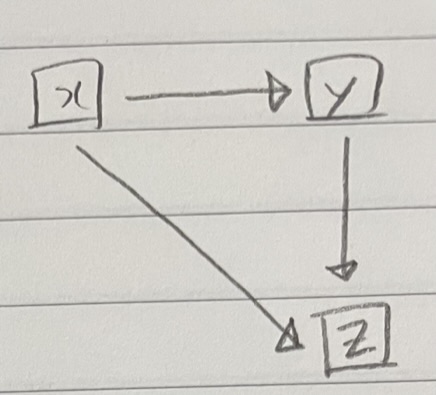 x y
z